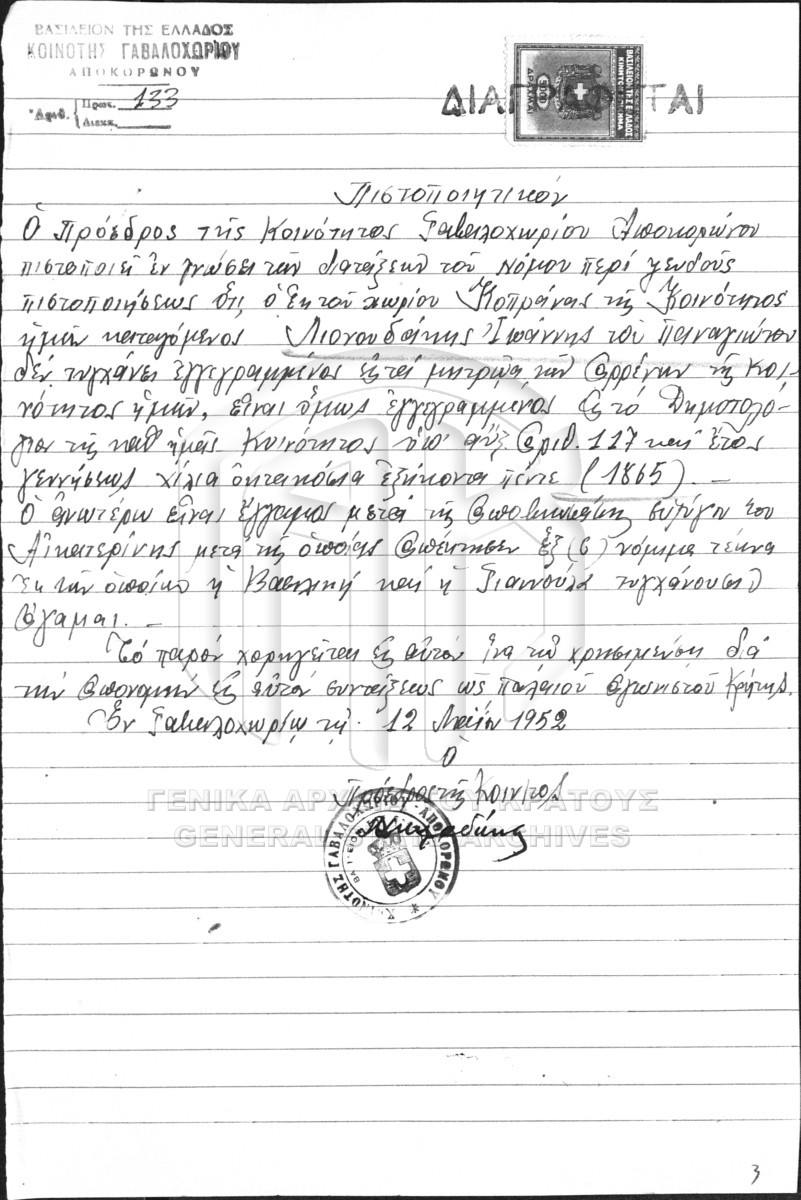 ΒΑΣΙΛΕΙΟΝ ΤΗΣ ΕΛΛΑΔΟΣ
ΚΟΙΝΟΤΗΣ ΓΑΒΑΛΟΧΩΡΙΟΥ
ΑΠΟΚΟΡΩΝΟΥ
Ἀριθ. { Πρωτ. 133
Διεκπ.
ΔΙΑΓΡΑΦΕΤΑΙ
ΒΑΣΙΛΕΙΟΝ ΤΗΣ ΕΛΛΑΔΟΣ
ΔΡΑΧΜΑΙ
Πιστοποιητικόν
Ὁ Πρόεδρος τῆς Κοινότητος Γαβαλοχωρίου Ἀποκορώνου
πιστοποιεῖ ἐν γνώσει τῶν διατάξεων τοῦ Νόμου περί ψευδοῦς
πιστοποιήσεως ὅτι, ὁ ἐκ τοῦ χωρίου Κοπράνας τῆς Κοινότητος
ἡμῶν καταγόμενος Λιονουδάκης Ἰωάννης τοῦ Παναγιώτου
δέν τυγχάνει ἐγγεγραμμένος εἰς τά μητρῶα τῶν ἀρρένων τῆς Κοι-
νότητος ἡμῶν, εἶναι ὅμως ἐγγεγραμμένος εἰς τό Δημοτολό-
γιον τῆς καθ' ἡμᾶς Κοινότητος ὑπ' αὔξ. ἀριθ. 127 καί ἔτος
γεννήσεως χίλια ὀκτακόσια ἑξήκοντα πέντε (1865). —
Ὁ ἀνωτέρω εἶναι ἔγγαμος μετά τῆς ἀποβιωσάσης συζύγου του
Αἰκατερίνης μετά τῆς ὁποίας ἀπέκτησεν ἕξ (6) νόμιμα τέκνα
ἐκ τῶν ὁποίων ἡ Βασιλική καί ἡ Γιαννούλα τυγχάνουσιν
ἄγαμαι. —
Τό παρόν χορηγεῖται εἰς αὐτόν ἵνα τῷ χρησιμεύσῃ διά
τήν ἀπονομήν εἰς αὐτόν συντάξεως ὡς παλαιοῦ ἀγωνιστοῦ Κρήτης.
Ἐν Γαβαλοχωρίῳ τῇ 12 Μαΐου 1952
Ὁ
Πρόεδρος τῆς Κοιν/τος
ΚΟΙΝΟΤΗΣ ΓΑΒΑΛΟΧΩΡΙΟΥ - ΑΠΟΚΟΡΩΝΟΥ
ΓΕΝΙΚΑ ΑΡΧΕΙΑ ΤΟΥ ΚΡΑΤΟΥΣ
GENERAL STATE ARCHIVES
3